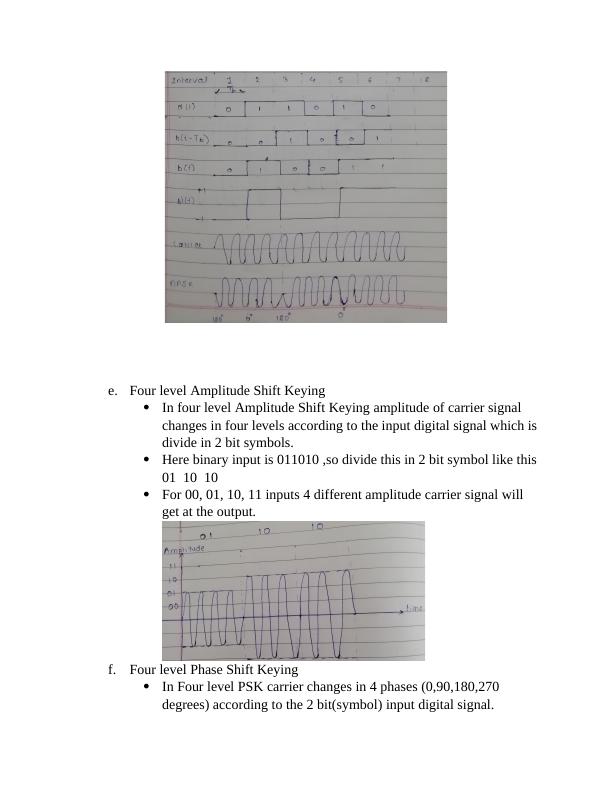 Interval 1 2 3 4 5 6 7 8
Tb
d(t) 0 1 1 0 1 0
b(t-Tb) 0 0 1 0 0 1
b(t) 0 1 0 0 1 1
+1
b(t)
-1
Carrier
DPSK
180° 0° 180° 0°
e. Four level Amplitude Shift Keying
• In four level Amplitude Shift Keying amplitude of carrier signal
changes in four levels according to the input digital signal which is
divide in 2 bit symbols.
• Here binary input is 011010 ,so divide this in 2 bit symbol like this
01 10 10
• For 00, 01, 10, 11 inputs 4 different amplitude carrier signal will
get at the output.
01 10 10
Amplitude
11
10
01
00
time
f. Four level Phase Shift Keying
• In Four level PSK carrier changes in 4 phases (0,90,180,270
degrees) according to the 2 bit(symbol) input digital signal.